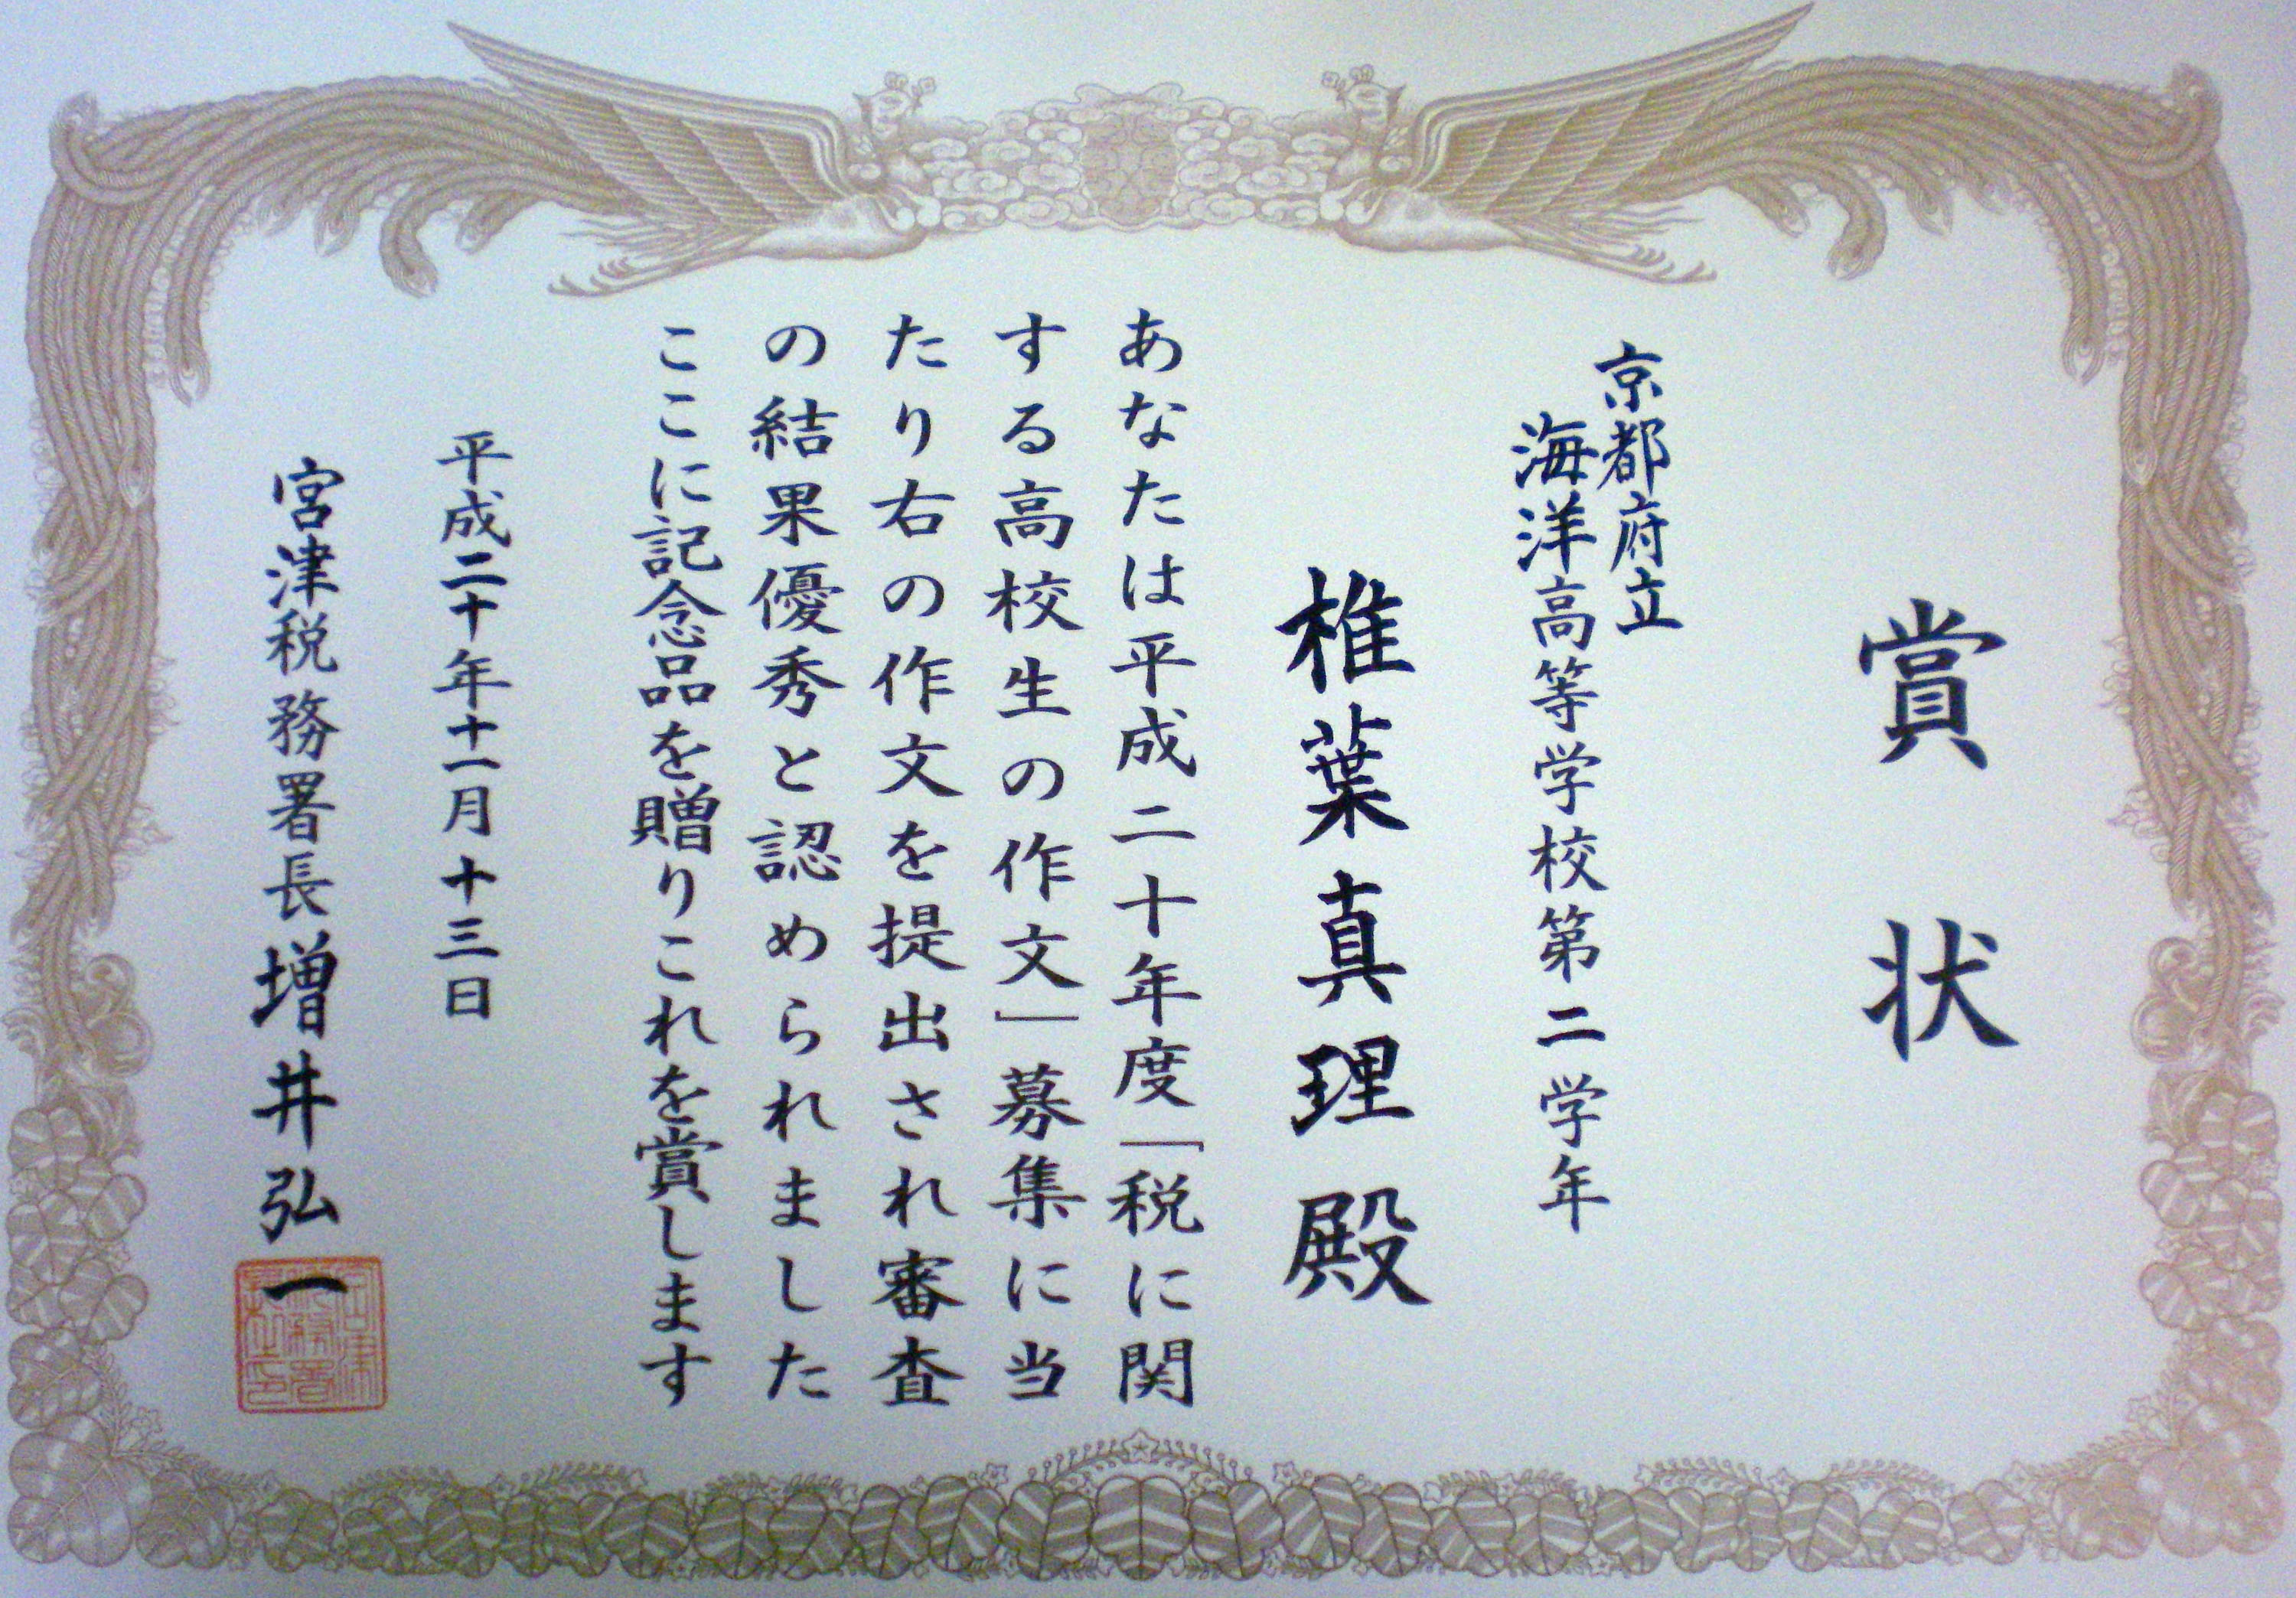 賞状
京都府立
海洋高等学校第二学年
椎葉真理殿
あなたは平成二十年度「税に関
する高校生の作文」募集に当
たり右の作文を提出され審査
の結果優秀と認められました
ここに記念品を贈りこれを賞します
平成二十年十一月十三日
宮津税務署長増井弘一